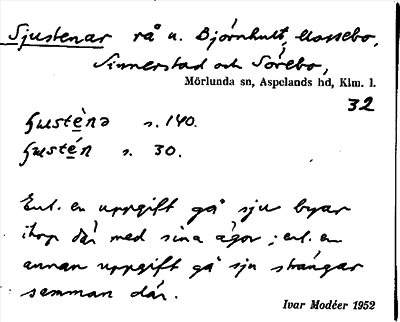 Sjustenar rå u. Björnhult, Mossebo,
Sinnerstad och Sörebo,
Mörlunda sn, Aspelands hd, Klm. l.
32
ʃustènə s. 140.
ʃustén s. 30.
Enl. en uppgift gå sju byar
ihop där med sina ägor; enl. en
annan uppgift gå sju strängar
samman där.
Ivar Modéer 1952